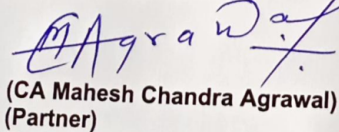 MAgrawal
(CA Mahesh Chandra Agrawal)
(Partner)